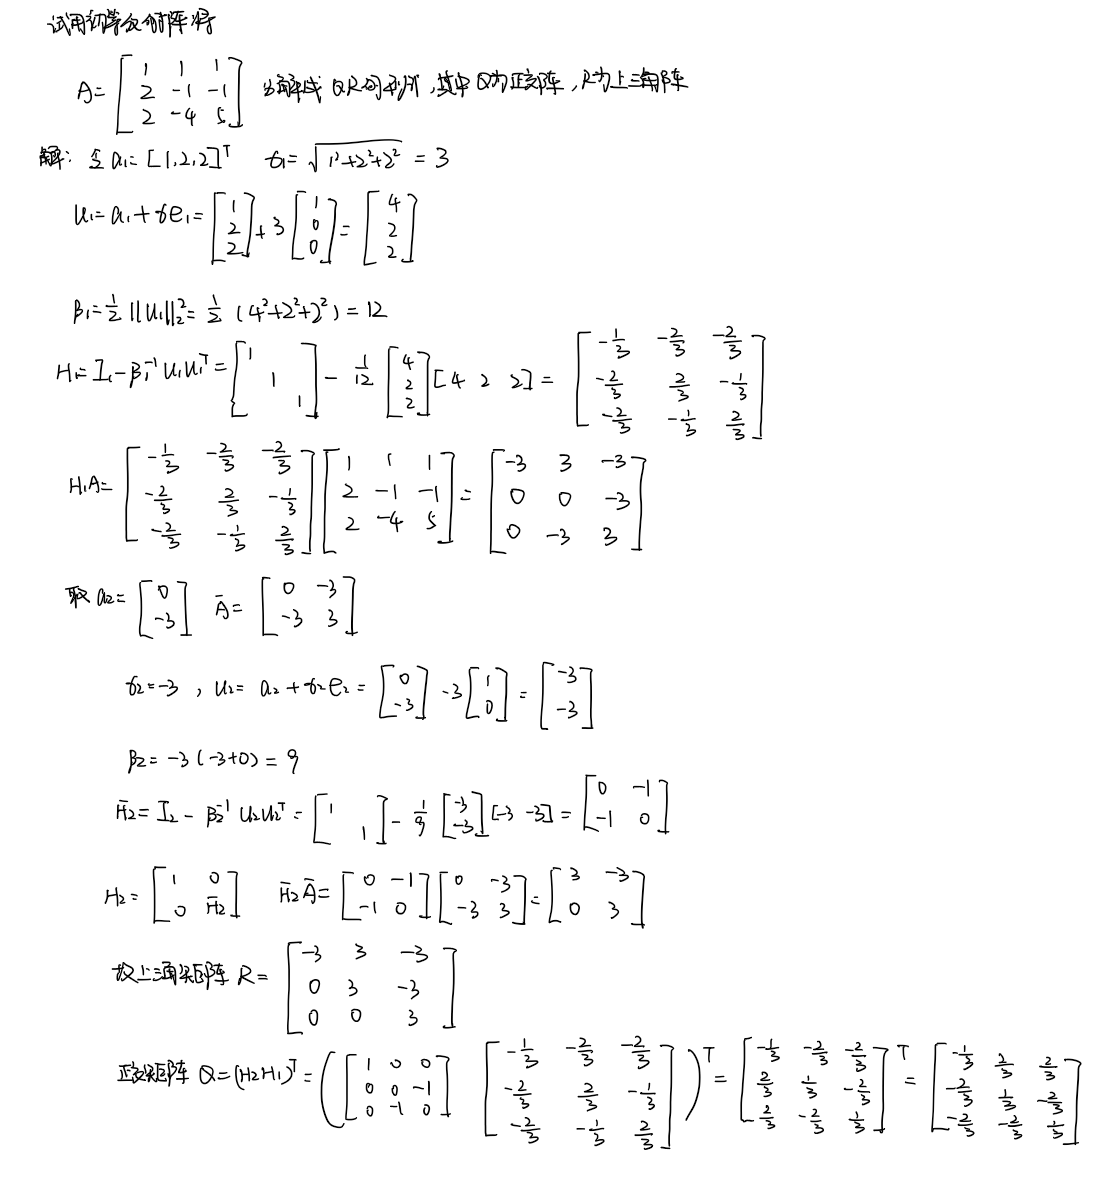 试用初等反射阵将
A = [1 1 1; 2 -1 -1; 2 -4 5] 分解成QR的形式,其中Q为正交阵,R为上三角阵
解: 令 a₁ = [1,2,2]ᵀ σ₁ = √(1²+2²+2²) = 3
u₁ = a₁ + σe₁ = [1; 2; 2] + 3[1; 0; 0] = [4; 2; 2]
β₁ = 1/2 ||u₁||₂² = 1/2 (4²+2²+2²) = 12
H₁ = I₁ - β₁⁻¹u₁u₁ᵀ = [1; 1; 1] - 1/12 [4; 2; 2] [4 2 2] = [-1/3 -2/3 -2/3; -2/3 2/3 -1/3; -2/3 -1/3 2/3]
H₁A = [-1/3 -2/3 -2/3; -2/3 2/3 -1/3; -2/3 -1/3 2/3] [1 1 1; 2 -1 -1; 2 -4 5] = [-3 3 -3; 0 0 -3; 0 -3 3]
取 a₂ = [0; -3] Ā = [0 -3; -3 3]
σ₂ = -3 , u₂ = a₂ + σ₂e₂ = [0; -3] -3 [1; 0] = [-3; -3]
β₂ = -3(-3+0) = 9
H̄₂ = I₂ - β₂⁻¹u₂u₂ᵀ = [1; 1] - 1/9 [-3; -3] [-3 -3] = [0 -1; -1 0]
H₂ = [1 0; 0 H̄₂] H̄₂Ā = [0 -1; -1 0] [0 -3; -3 3] = [3 -3; 0 3]
故上三角矩阵 R = [-3 3 -3; 0 3 -3; 0 0 3]
正交矩阵 Q = (H₂H₁)ᵀ = ([1 0 0; 0 0 -1; 0 -1 0] [-1/3 -2/3 -2/3; -2/3 2/3 -1/3; -2/3 -1/3 2/3])ᵀ = [-1/3 -2/3 -2/3; 2/3 1/3 -2/3; 2/3 -2/3 1/3]ᵀ = [-1/3 2/3 2/3; -2/3 1/3 -2/3; -2/3 -2/3 1/3]